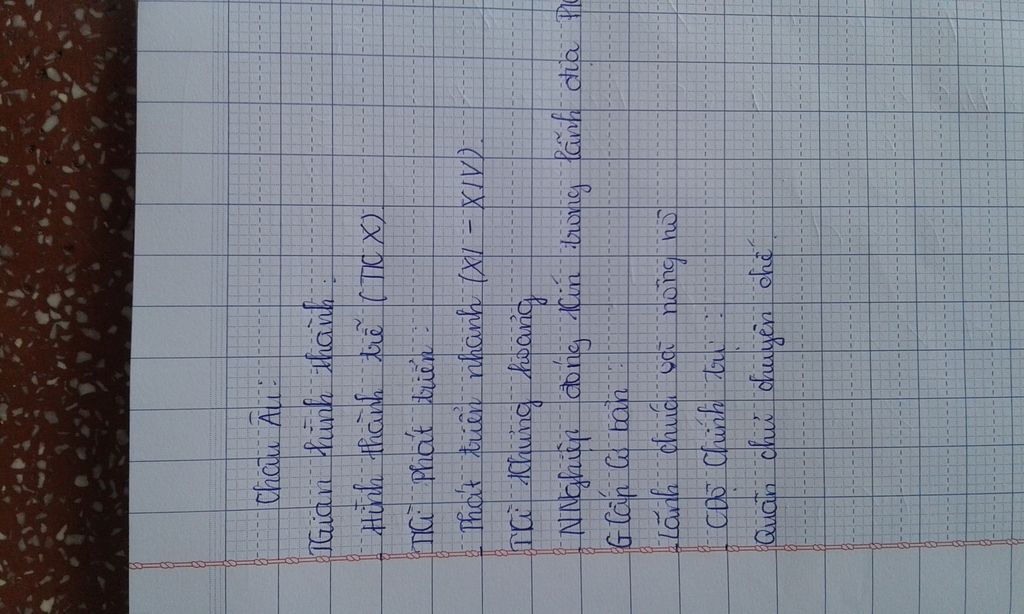 Châu Âu:
TGian hình thành:
Hình thành trễ (TK X).
TKì phát triển:
Phát triển nhanh (XI - XIV).
TKì khủng hoảng
NNghiệp đóng kín trong lãnh địa
G cấp cơ bản:
Lãnh chúa và nông nô
CĐộ Chính trị:
Quân chủ chuyên chế.